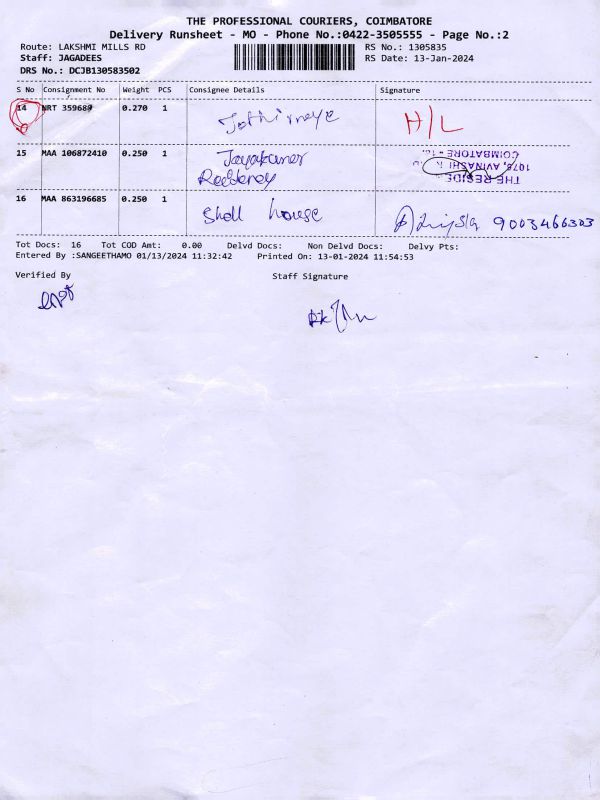 THE PROFESSIONAL COURIERS, COIMBATORE
Delivery Runsheet - MO - Phone No.:0422-3505555 - Page No.:2
Route: LAKSHMI MILLS RD RS No.: 1305835
Staff: JAGADEES RS Date: 13-Jan-2024
DRS No.: DCJB130583502
S No Consignment No Weight PCS Consignee Details Signature
14 NRT 359687 0.270 1 H/L
15 MAA 106872410 0.250 1 Jayakumar
THE RESIDE
1076, AVINASHI R
COIMBATORE - 
16 MAA 863196685 0.250 1 Shell house 9003466303
Tot Docs: 16 Tot COD Amt: 0.00 Delvd Docs: Non Delvd Docs: Delvy Pts:
Entered By :SANGEETHAMO 01/13/2024 11:32:42 Printed On: 13-01-2024 11:54:53
Verified By Staff Signature